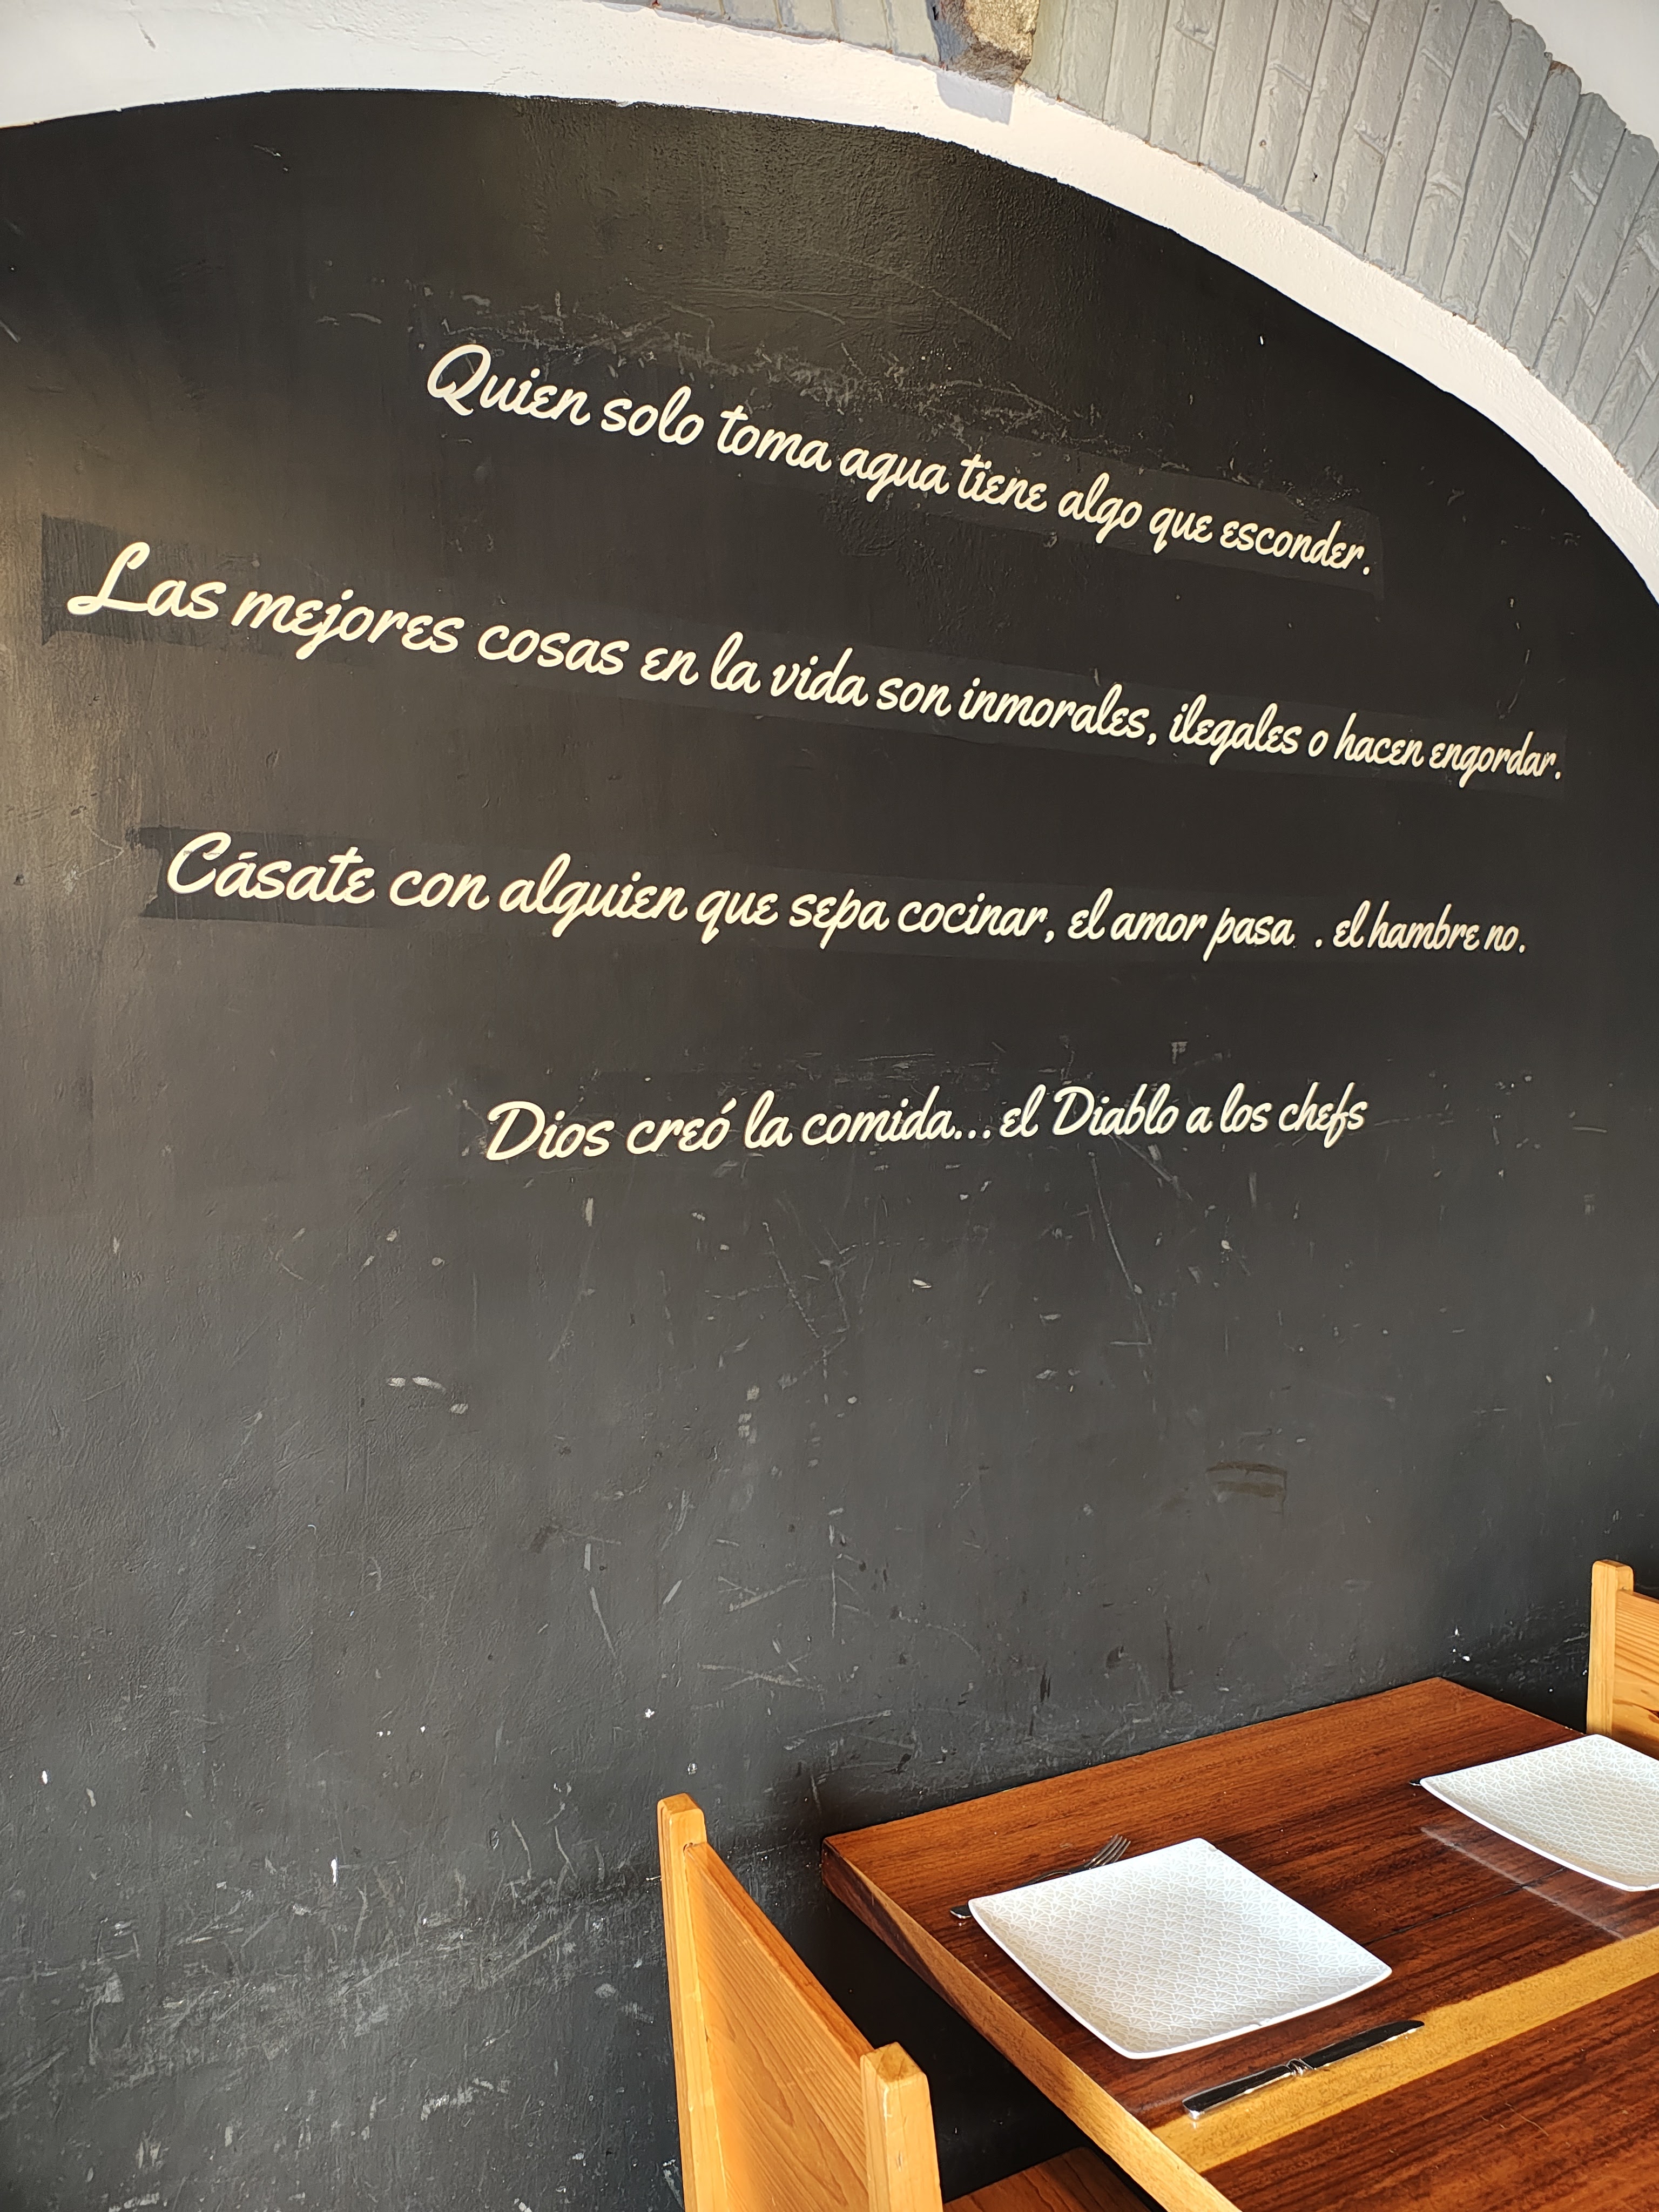 Quien solo toma agua tiene algo que esconder.
Las mejores cosas en la vida son inmorales, ilegales o hacen engordar.
Cásate con alguien que sepa cocinar, el amor pasa . el hambre no.
Dios creó la comida... el Diablo a los chefs